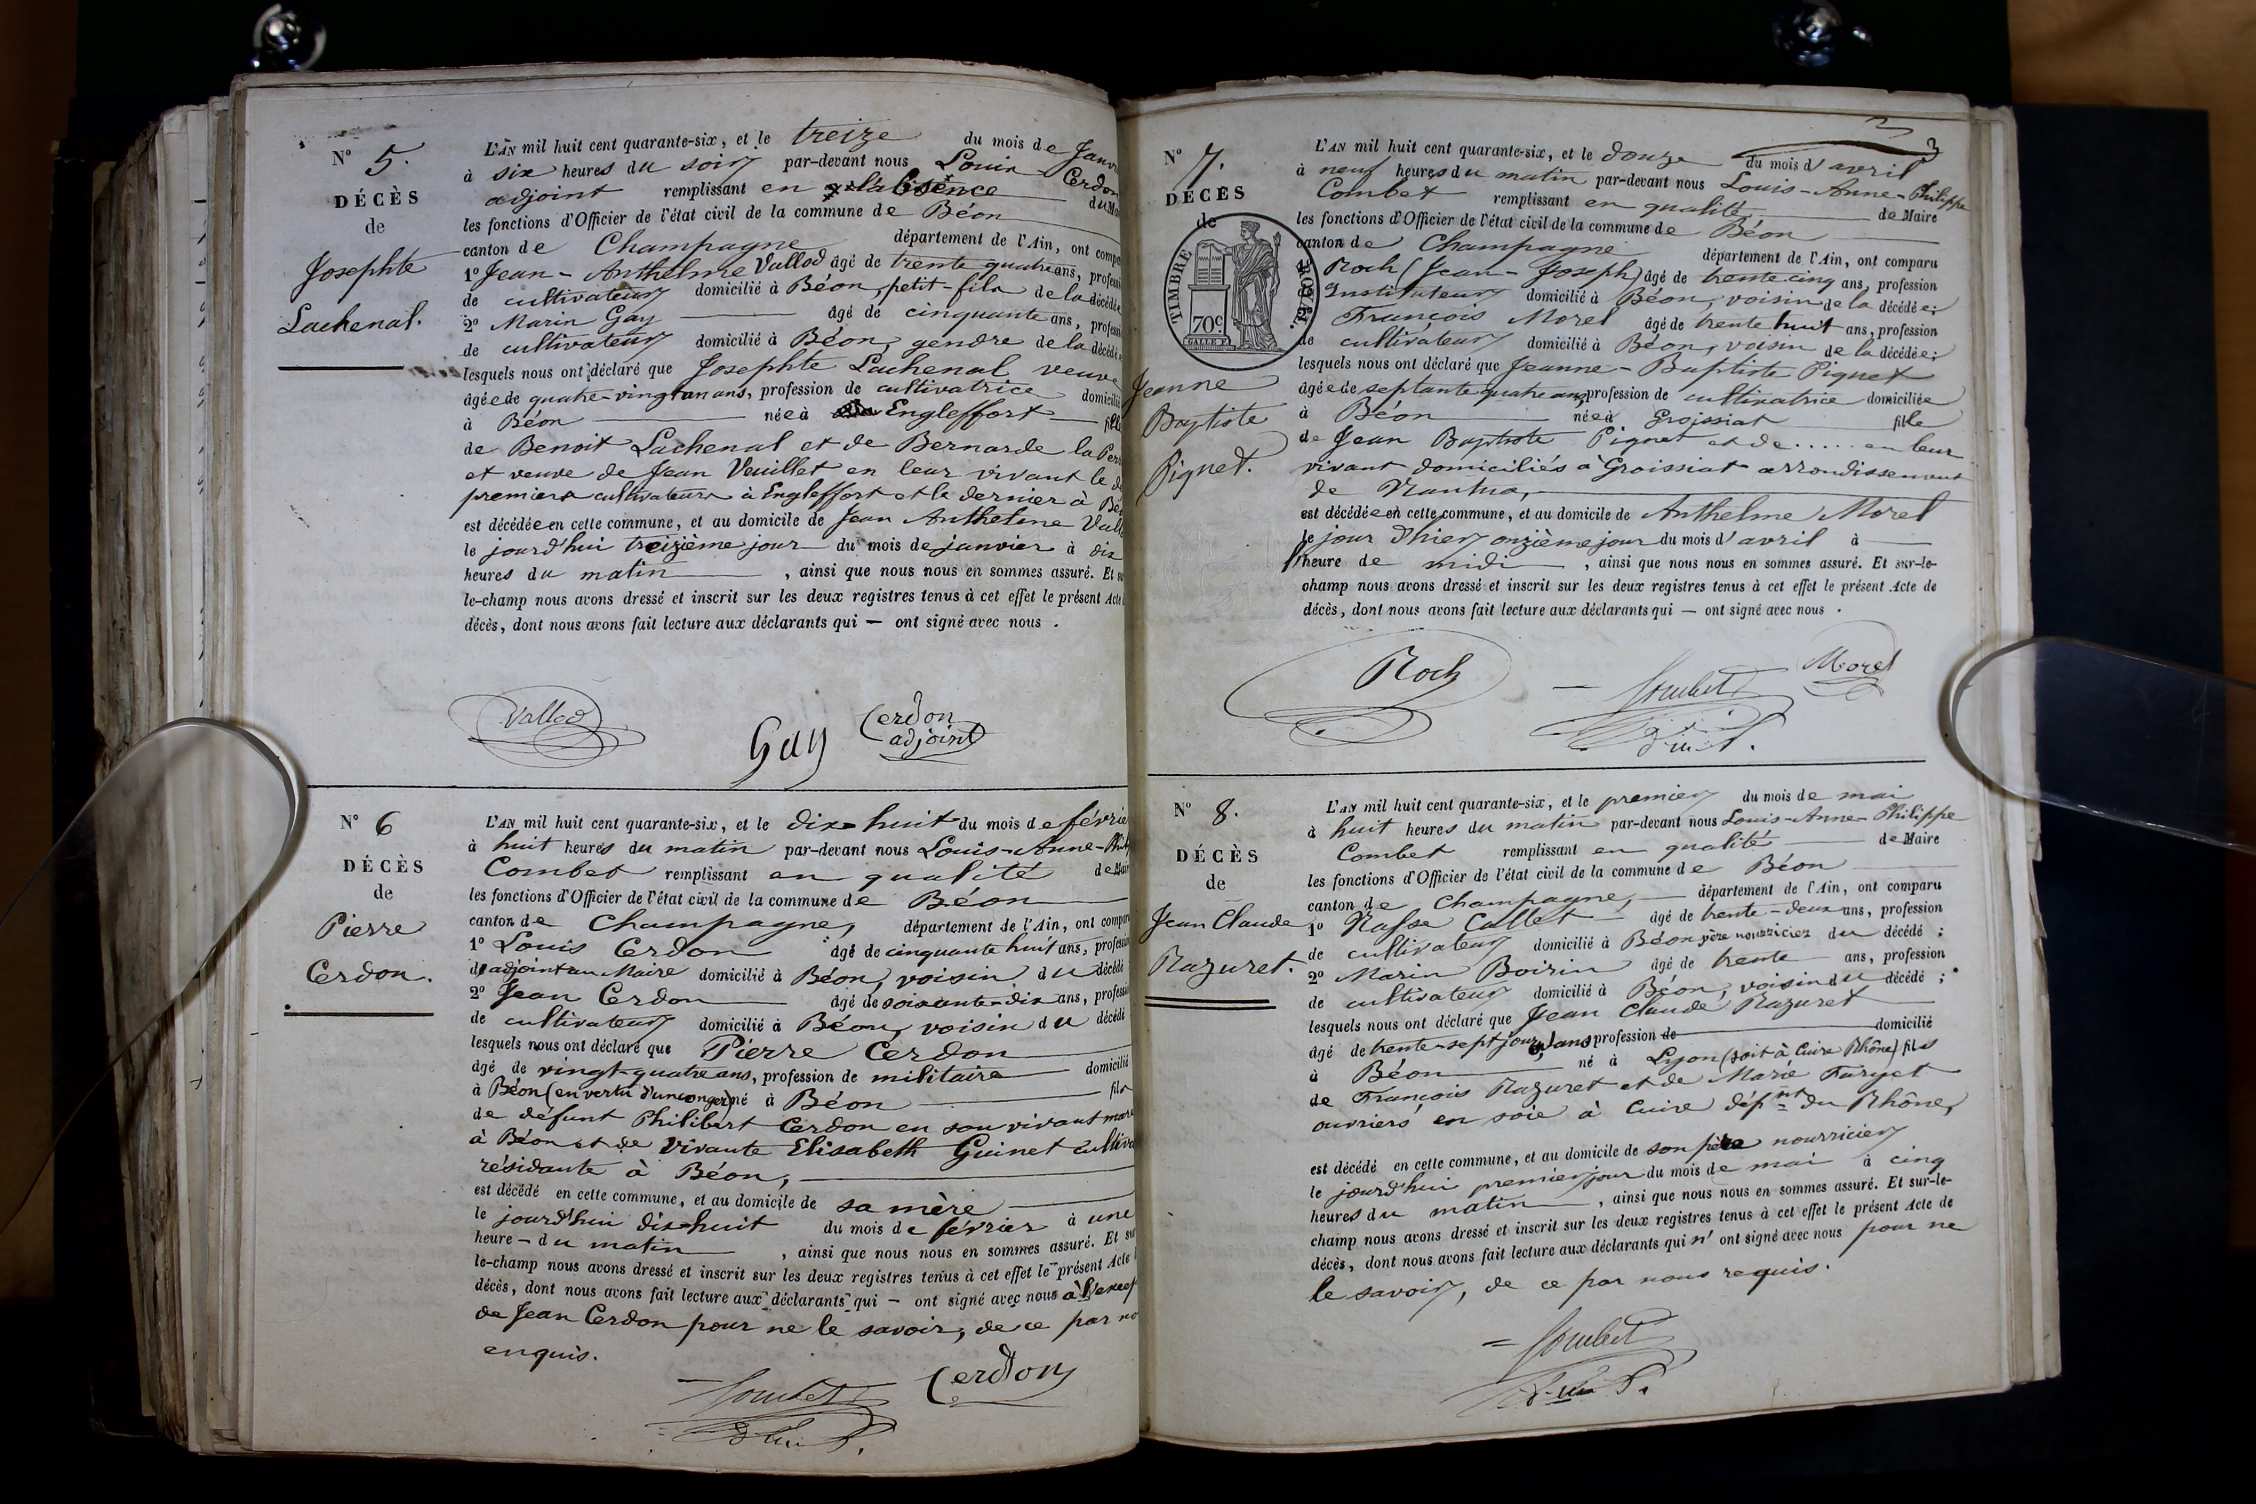 N° 5.
DÉCÈS
de
Josephte
Lachenal.
L'AN mil huit cent quarante-six, et le treize du mois de Janv
à six heures du soir par-devant nous Louis Cerdon
adjoint remplissant en l'absence du Mai
les fonctions d'Officier de l'état civil de la commune de Béon
canton de Champagne département de l'Ain, ont compa
1° Jean-Anthelme Vallod âgé de trente quatre ans, professi
de cultivateur domicilié à Béon, petit-fils de la décédée
2° Marin Gay âgé de cinquante ans, professi
de cultivateur domicilié à Béon, gendre de la décédée
lesquels nous ont déclaré que Josephte Lachenal veuve
âgée de quatre-vingt un ans, profession de cultivatrice domicilié
à Béon née à Engleffort fille
de Benoit Lachenal et de Bernarde la Perr
et veuve de Jean Veuillet en leur vivant le de
premiers cultivateurs à Engleffort et le dernier à Bé
est décédée en cette commune, et au domicile de Jean Anthelme Vall
le jourd'hui treizième jour du mois de janvier à dix
heures du matin, ainsi que nous nous en sommes assuré. Et su
le-champ nous avons dressé et inscrit sur les deux registres tenus à cet effet le présent Acte
décès, dont nous avons fait lecture aux déclarants qui — ont signé avec nous.
Vallod
Gay
Cerdon
adjoint
N° 6
DÉCÈS
de
Pierre
Cerdon.
L'AN mil huit cent quarante-six, et le dix-huit du mois de févrie
à huit heures du matin par-devant nous Louis-Anne-Phili
Combet remplissant en qualité de Mair
les fonctions d'Officier de l'état civil de la commune de Béon
canton de Champagne, département de l'Ain, ont compar
1° Louis Cerdon âgé de cinquante huit ans, professi
de adjoint au Maire domicilié à Béon, voisin du décédé
2° Jean Cerdon âgé de soixante-dix ans, professi
de cultivateur domicilié à Béon, voisin du décédé
lesquels nous ont déclaré que Pierre Cerdon
âgé de vingt-quatre ans, profession de militaire domicilié
à Béon (en vertu d'un congé) né à Béon fils
de défunt Philibert Cerdon en son vivant mare
à Béon et de vivante Elisabeth Guinet cultiva
résidante à Béon,
est décédé en cette commune, et au domicile de sa mère
le jourd'hui dix-huit du mois de février à une
heure - du matin, ainsi que nous nous en sommes assuré. Et su
le-champ nous avons dressé et inscrit sur les deux registres tenus à cet effet le présent Acte
décès, dont nous avons fait lecture aux déclarants qui — ont signé avec nous à l'excep
de Jean Cerdon pour ne le savoir, de ce par no
enquis.
Combet
Cerdon
3
N° 7.
DÉCÈS
de
TIMBRE ROYAL.
70c
Jeanne
Baptiste
Pignet.
L'AN mil huit cent quarante-six, et le douze du mois d'avril
à neuf heures du matin par-devant nous Louis-Anne-Philippe
Combet remplissant en qualité de Maire
les fonctions d'Officier de l'état civil de la commune de Béon
canton de Champagne département de l'Ain, ont comparu
Roch (Jean-Joseph) âgé de trente cinq ans, profession
Instituteur domicilié à Béon, voisin de la décédée;
François Morel âgé de trente huit ans, profession
de cultivateur domicilié à Béon, voisin de la décédée;
lesquels nous ont déclaré que Jeanne-Baptiste Pignet
âgée de septante quatre ans, profession de cultivatrice domiciliée
à Béon née à Groissiat fille
de Jean Baptiste Pignet et de ..... en leur
vivant domiciliés à Groissiat arrondissement
de Nantua,
est décédée en cette commune, et au domicile de Anthelme Morel
le jour d'hier onzième jour du mois d'avril à
l'heure de midi, ainsi que nous nous en sommes assuré. Et sur-le-
champ nous avons dressé et inscrit sur les deux registres tenus à cet effet le présent Acte de
décès, dont nous avons fait lecture aux déclarants qui — ont signé avec nous.
Roch
Combet
Morel
N° 8.
DÉCÈS
de
Jean Claude
Razuret.
L'AN mil huit cent quarante-six, et le premier du mois de mai
à huit heures du matin par-devant nous Louis-Anne-Philippe
Combet remplissant en qualité de Maire
les fonctions d'Officier de l'état civil de la commune de Béon
canton de Champagne, département de l'Ain, ont comparu
1° Callet âgé de trente-deux ans, profession
de cultivateur domicilié à Béon père nourricier du décédé;
2° Marin Boirin âgé de trente ans, profession
de cultivateur domicilié à Béon, voisin du décédé;
lesquels nous ont déclaré que Jean Claude Razuret
âgé de trente-sept jours, ans profession de domicilié
à Béon né à Lyon (soit à Cuire Rhône) fils
de François Razuret et de Marie Furget
ouvriers en soie à Cuire dépnt du Rhône,
est décédé en cette commune, et au domicile de son père nourricier
le jourd'hui premier jour du mois de mai à cinq
heures du matin, ainsi que nous nous en sommes assuré. Et sur-le-
champ nous avons dressé et inscrit sur les deux registres tenus à cet effet le présent Acte de
décès, dont nous avons fait lecture aux déclarants qui n'ont signé avec nous pour ne
le savoir, de ce par nous requis.
Combet